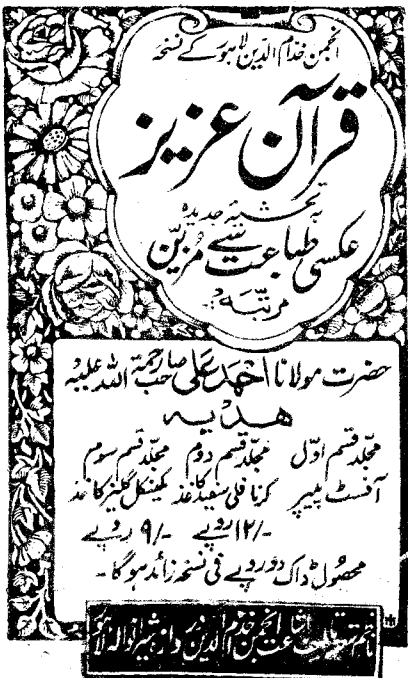 انجمن خدام الدین لاہور کے نسخہ
قرآن عزیز
بہ تحشیہٴ جدیدہ
عکسی طباعت سے مزین
مرتبہ
حضرت مولانا احمد علی صاحب رحمۃ اللہ علیہ
ھدیہ
مجلد قسم اوّل مجلد قسم دوم مجلد قسم سوم
آفسٹ پیپر کرنافلی سفید کاغذ مکینکل گلیز کاغذ
۱۲/- روپے ۹/- روپے
محصول ڈاک دو روپے فی نسخہ زائد ہوگا۔
ناظم شعبہ اشاعت انجمن خدام الدین دروازہ شیرانوالہ لاہور